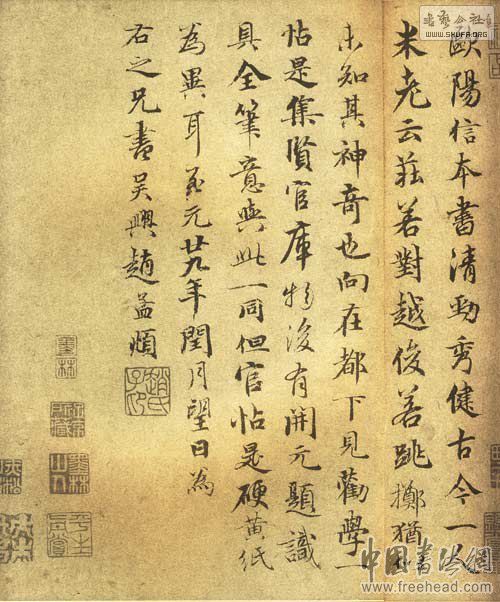 歐陽信本書清勁秀健古今一人
米老云莊若對越俊若跳擲猶似
未知其神奇也向在都下見勸學一
帖是集賢官庫物後有開元題識
具全筆意與此一同但官帖是硬黃紙
為異耳至元廿九年閏月望日為
右之兄書吳興趙孟頫
趙氏子昂
www.SKUFA.ORG
中国书法網
www.freehead.com